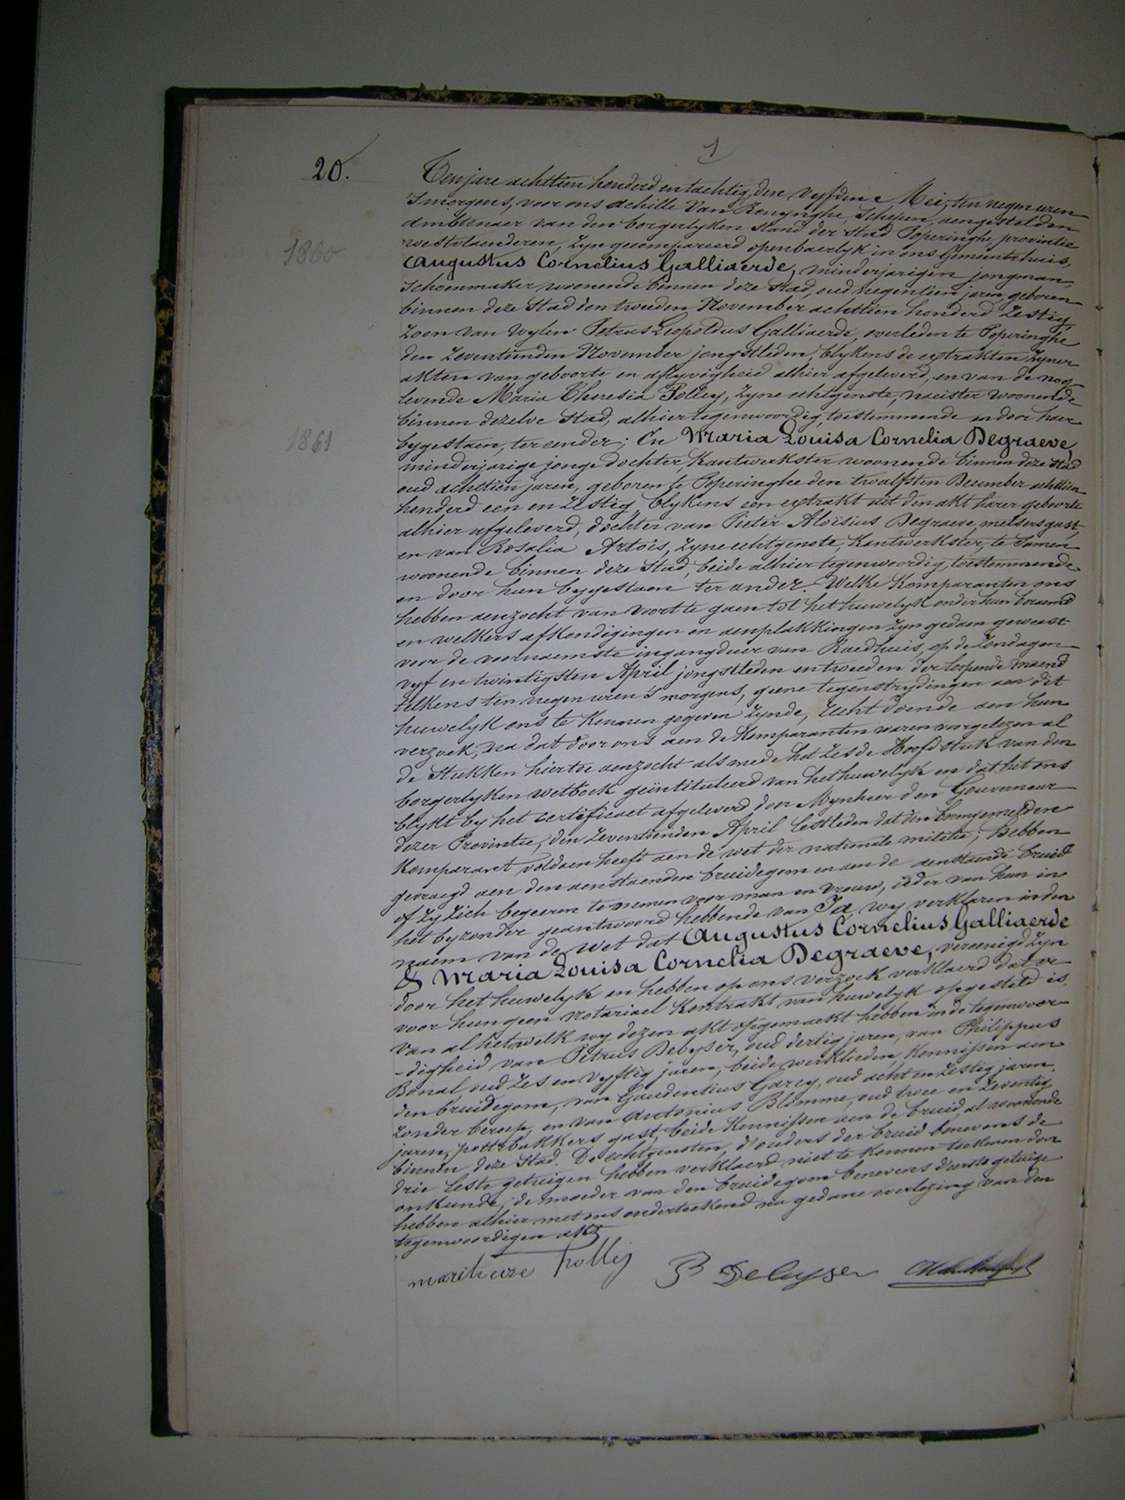 1
20.
Ten jare achttien honderd en tachtig, den vyfden Mei, ten negen uren
's morgens, voor ons Achille Van Renynghe, Schepen, aengestelden
ambtenaer van den borgerlyken stand der stad Poperinghe, provintie
westvlaenderen, zyn gecompareerd openbaerlyk in ons Gemeentehuis,
1860
Augustus Cornelius Galliaerde, minderjarigen jongman,
Schoenmaker, woonende binnen deze stad, oud negentien jaren, geboren
binnen deze Stad den tweeden November achttien honderd Zestig,
Zoon van wylen Petrus Leopoldus Galliaerde, overleden te Poperinghe
den Zeventienden November jongstleden, blykens de extrakten zyner
akten van geboorte en aflyvigheid alhier afgeleverd, en van de nog
levende Maria Theresia Polley, Zyne echtgenote, naeister woonende
binnen dezelve Stad, alhier tegenwoordig, toestemmende en door haer
1861
bygestaen, ter eender; En Maria Louisa Cornelia Degraeve,
minderjarige jonge dochter, Kantwerkster woonende binnen deze stad
oud achttien jaren, geboren te Poperinghe den twaalfsten December achttien
honderd een en Zestig, blykens een extrakt uit den akt harer geboorte
alhier afgeleverd, dochter van Pieter Aloïsius Degraeve, mulders gast,
en van Rosalia Artois, Zyne echtgenote, Kantwerkster, te Samen
woonende binnen deze Stad, beide alhier tegenwoordig, toestemmende
en door hun bygestaen ter ander. Welke Komparanten ons
hebben aenzocht van voort te gaen tot het huwelyk onder hun beraemd
en welkers afkondigingen en aenplakkingen Zyn gedaen geweest
voor de voornaemste ingangdeur van Raedhuis, op de Zondagen
vyf en twintigsten April jongstleden en tweeden der loopende maend
telkens ten negen uren 's morgens, geene tegenstrydingen aen dit
huwelyk ons te Kennen gegeven Zynde, Recht doende aen hun
verzoek, na dat door ons aen de Komparanten waren voorgelezen al
de Stukken hiertoe aenzocht als mede het Zesde Hoofdstuk van den
borgerlyken wetboek geïntituleerd van het huwelyk en dat het ons
blykt by het certificaet afgeleverd door Mynheer den Gouverneur
dezer Provintie, den Zeventienden April lestleden dat den bovengemelden
Komparant voldaen heeft aen de wet der nationale militie; Hebben
gevraegd aen den aenstaenden bruidegom en aen de aenstaende bruid
of Zy Zich begeeren te nemen voor man en vrouw, ieder van hun in
het byzonder geantwoord hebbende van Ja, wy verklaren in den
naem van de wet dat Augustus Cornelius Galliaerde
& Maria Louisa Cornelia Degraeve, vereenigd Zyn
door het huwelyk en hebben op ons verzoek verklaerd dat er
voor hun geen notariael Kontrakt van huwelyk opgesteld is.
Van al hetwelk wy dezen akt opgemaekt hebben in de tegenwoor-
-digheid van Petrus Debyser, oud dertig jaren, van Philippus
Bonal, oud Zes en Vyftig jaren, beide werklieden, Kennissen aen
den bruidegom, van Gaudentius Garey, oud acht en Zestig jaren,
Zonder beroep, en van Antonius Blomme, oud twee en Zeventig
jaren, pottebakkers gast, beide Kennissen aen de bruid, al woonende
binnen deze Stad. De echtgenoten, d'ouders der bruid benevens de
drie leste getuigen hebben verklaerd niet te Konnen teekenen door
onkunde; de moeder van den bruidegom benevens d'eerste getuige
hebben alhier met ons onderteekend na gedane voorlezing van den
tegenwoordigen akt.
P Debyser